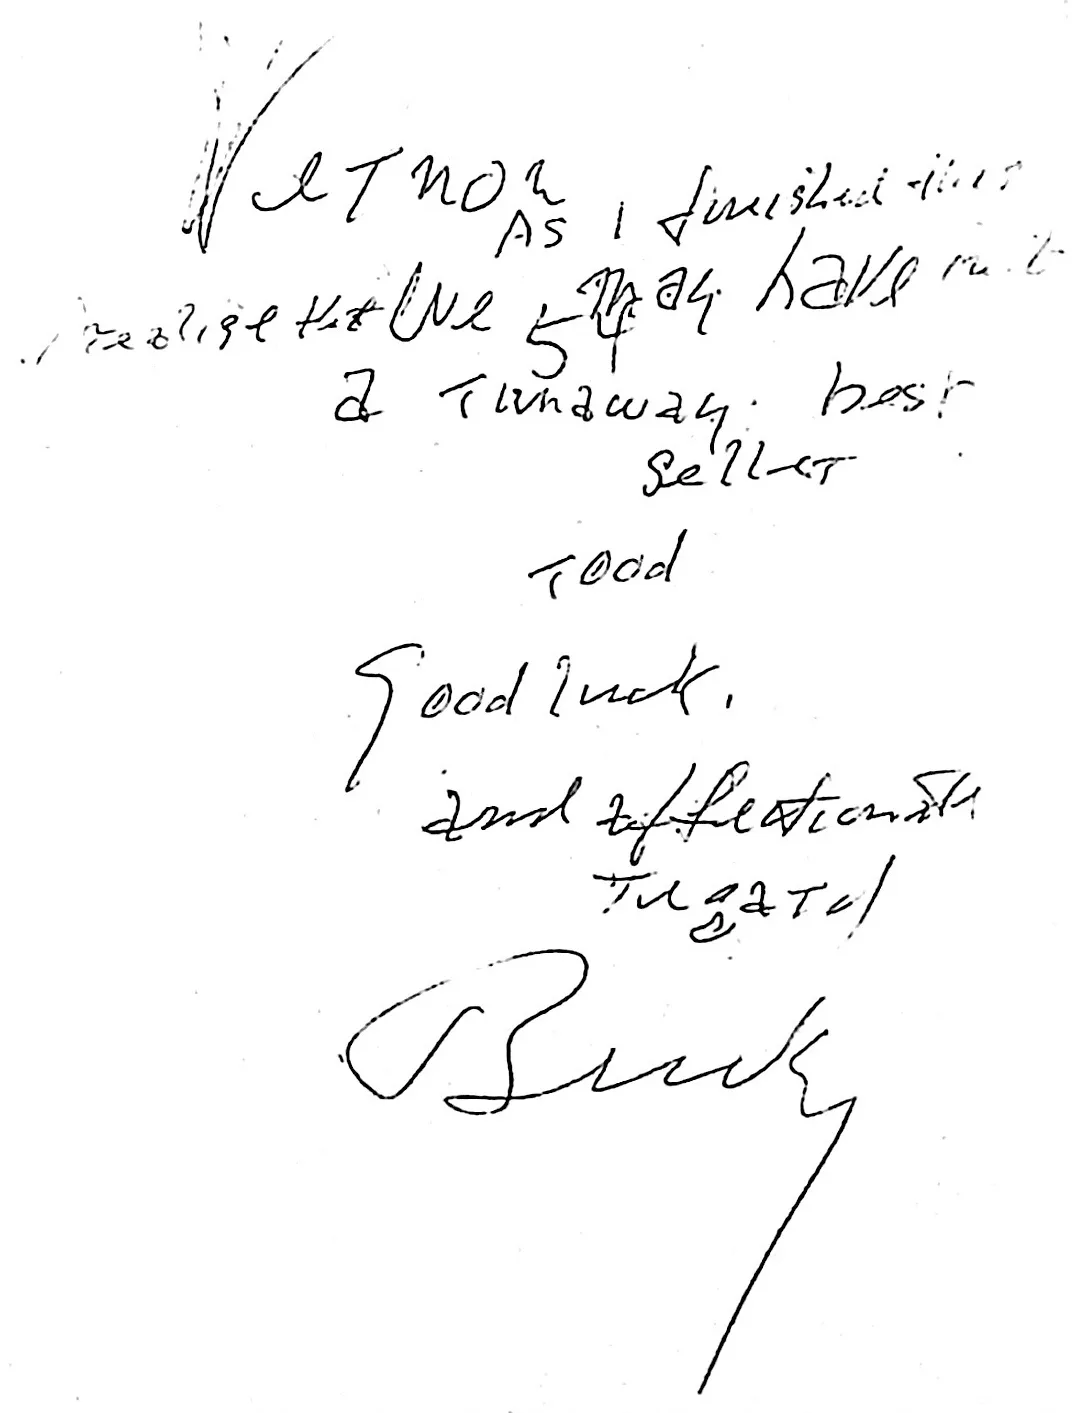 Vernon
As I finished this
I realize that We may have
54
a runaway best
seller
rood
Good luck,
and affectionate
regard
Bucky